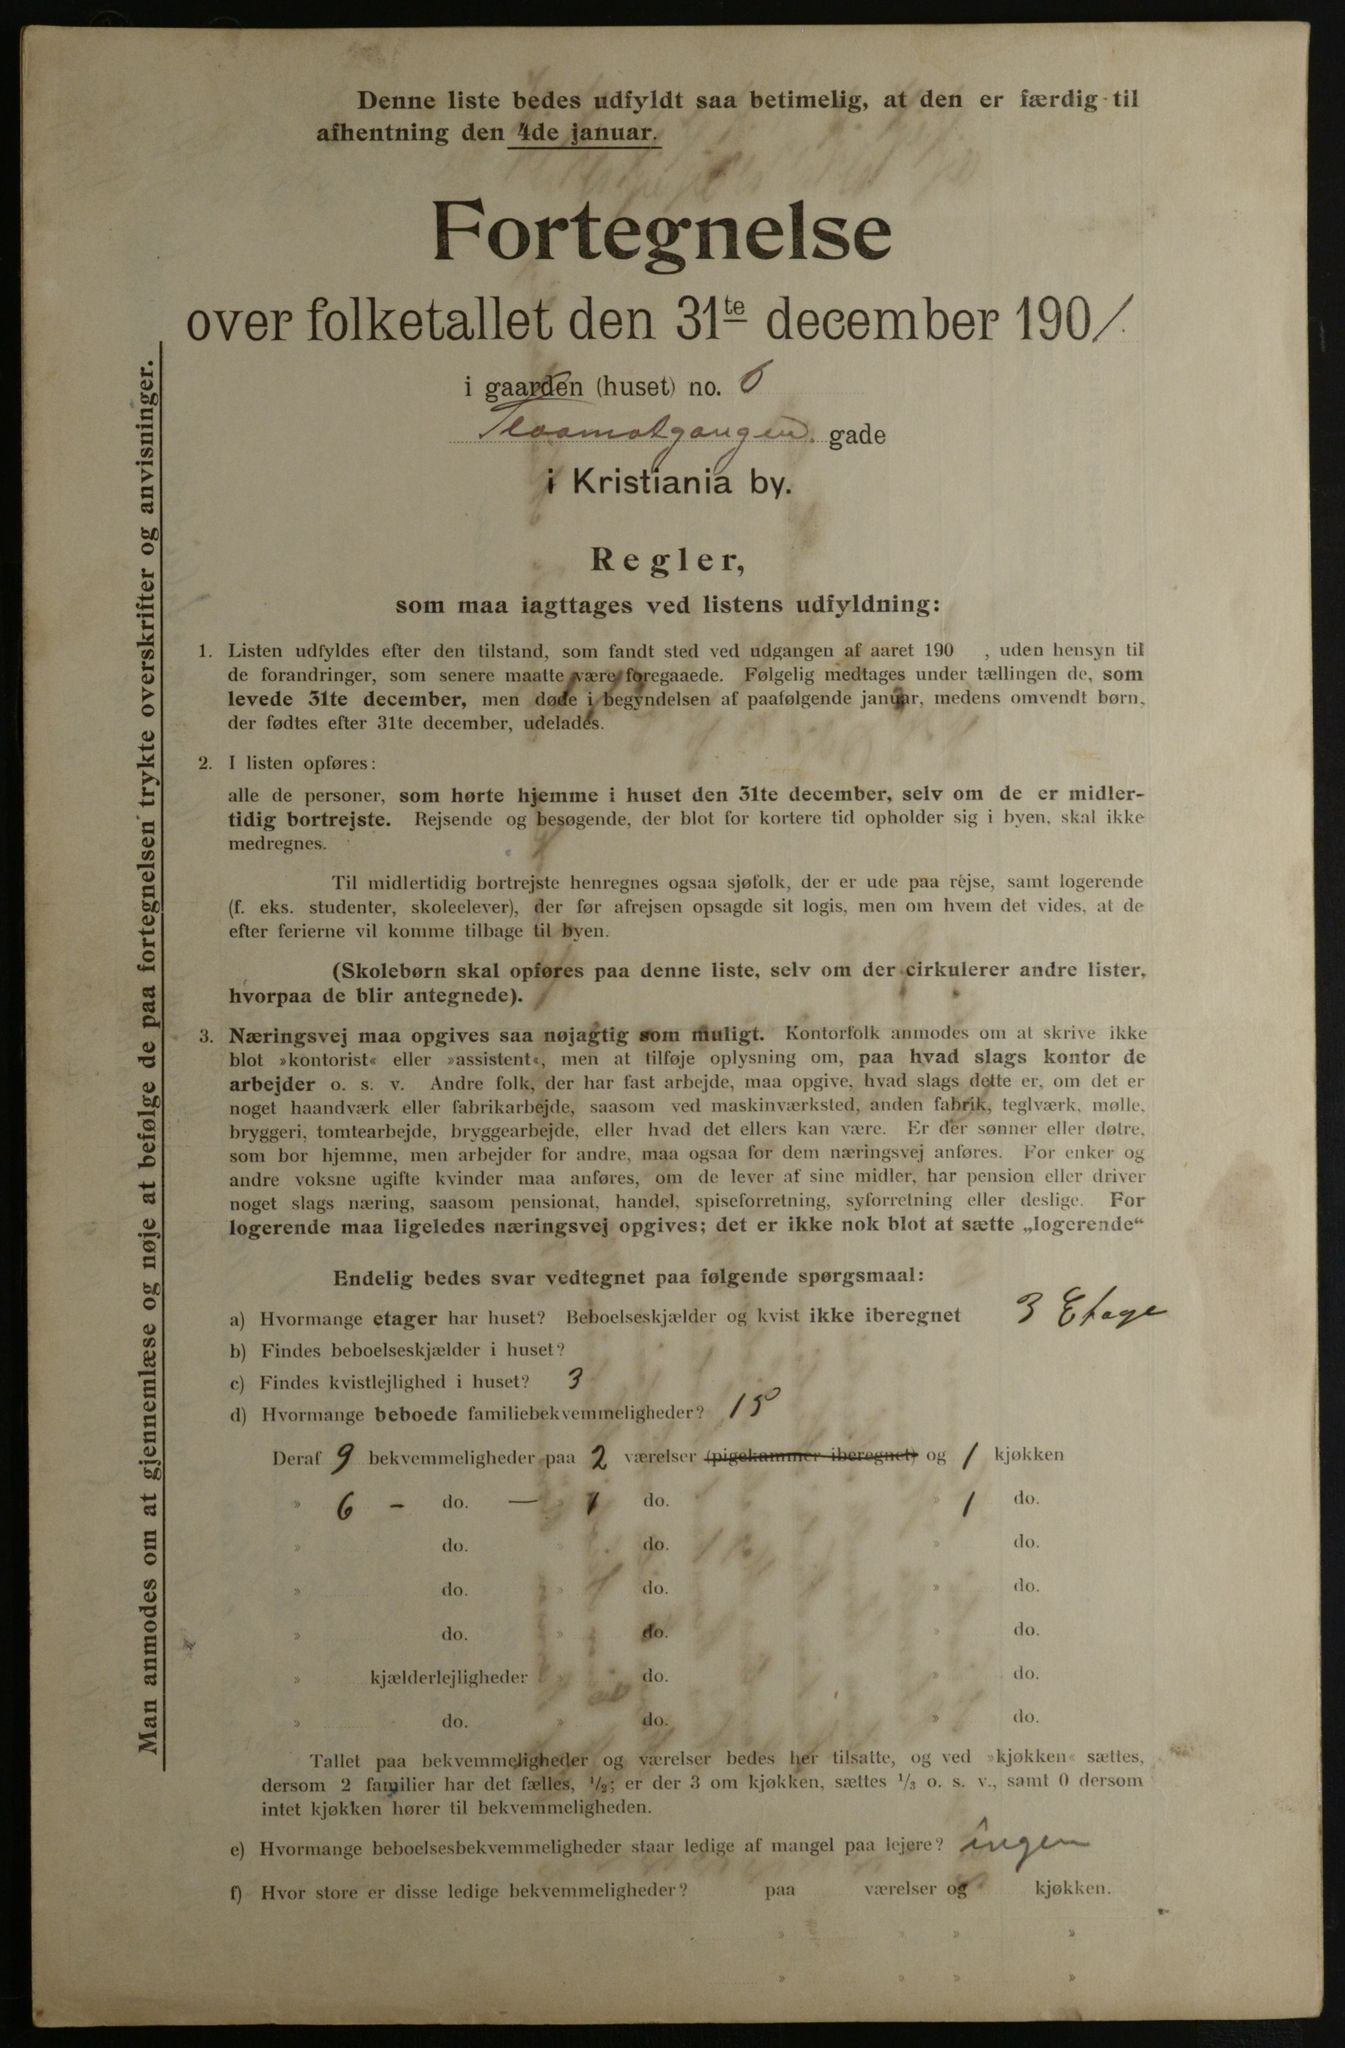 Denne liste bedes udfyldt saa betimelig, at den er færdig til
afhentning den 4de januar.
Fortegnelse
over folketallet den 31te december 1901.
i gaarden (huset) no. 6
gade
i Kristiania by.
Regler,
som maa iagttages ved listens udfyldning:
1. Listen udfyldes efter den tilstand, som fandt sted ved udgangen af aaret 190 , uden hensyn til
de forandringer, som senere maatte være foregaaede. Følgelig medtages under tællingen de, som
levede 31te december, men døde i begyndelsen af paafølgende januar, medens omvendt børn,
der fødtes efter 31te december, udelades.
2. I listen opføres:
alle de personer, som hørte hjemme i huset den 31te december, selv om de er midler-
tidig bortrejste. Rejsende og besøgende, der blot for kortere tid opholder sig i byen, skal ikke
medregnes.
Til midlertidig bortrejste henregnes ogsaa sjøfolk, der er ude paa rejse, samt logerende
(f. eks. studenter, skoleelever), der før afrejsen opsagde sit logis, men om hvem det vides, at de
efter ferierne vil komme tilbage til byen.
(Skolebørn skal opføres paa denne liste, selv om der cirkulerer andre lister,
hvorpaa de blir antegnede).
3. Næringsvej maa opgives saa nøjagtig som muligt. Kontorfolk anmodes om at skrive ikke
blot »kontorist« eller »assistent«, men at tilføje oplysning om, paa hvad slags kontor de
arbejder o. s. v. Andre folk, der har fast arbejde, maa opgive, hvad slags dette er, om det er
noget haandværk eller fabrikarbejde, saasom ved maskinværksted, anden fabrik, teglværk, mølle,
bryggeri, tomtearbejde, bryggearbejde, eller hvad det ellers kan være. Er der sønner eller døtre,
som bor hjemme, men arbejder for andre, maa ogsaa for dem næringsvej anføres. For enker og
andre voksne ugifte kvinder maa anføres, om de lever af sine midler, har pension eller driver
noget slags næring, saasom pensionat, handel, spiseforretning, syforretning eller deslige. For
logerende maa ligeledes næringsvej opgives; det er ikke nok blot at sætte „logerende“
Endelig bedes svar vedtegnet paa følgende spørgsmaal:
a) Hvormange etager har huset? Beboelseskjælder og kvist ikke iberegnet 3 Etage
b) Findes beboelseskjælder i huset?
c) Findes kvistlejlighed i huset? 3
d) Hvormange beboede familiebekvemmeligheder? 15
Deraf 9 bekvemmeligheder paa 2 værelser (pigekammer iberegnet) og 1 kjøkken
» 6 - do. — » 1 do. » 1 do.
» do. » do. » do.
» do. » do. » do.
» do. » do. » do.
» kjælderlejligheder » do. » do.
» do. » do. » do.
Tallet paa bekvemmeligheder og værelser bedes her tilsatte, og ved »kjøkken« sættes,
dersom 2 familier har det fælles, 1/2; er der 3 om kjøkken, sættes 1/3 o. s. v., samt 0 dersom
intet kjøkken hører til bekvemmeligheden.
e) Hvormange beboelsesbekvemmeligheder staar ledige af mangel paa lejere? ingen
f) Hvor store er disse ledige bekvemmeligheder? paa værelser og kjøkken.
» » »
» » »
Man anmodes om at gjennemlæse og nøje at befølge de paa fortegnelsen trykte overskrifter og anvisninger.